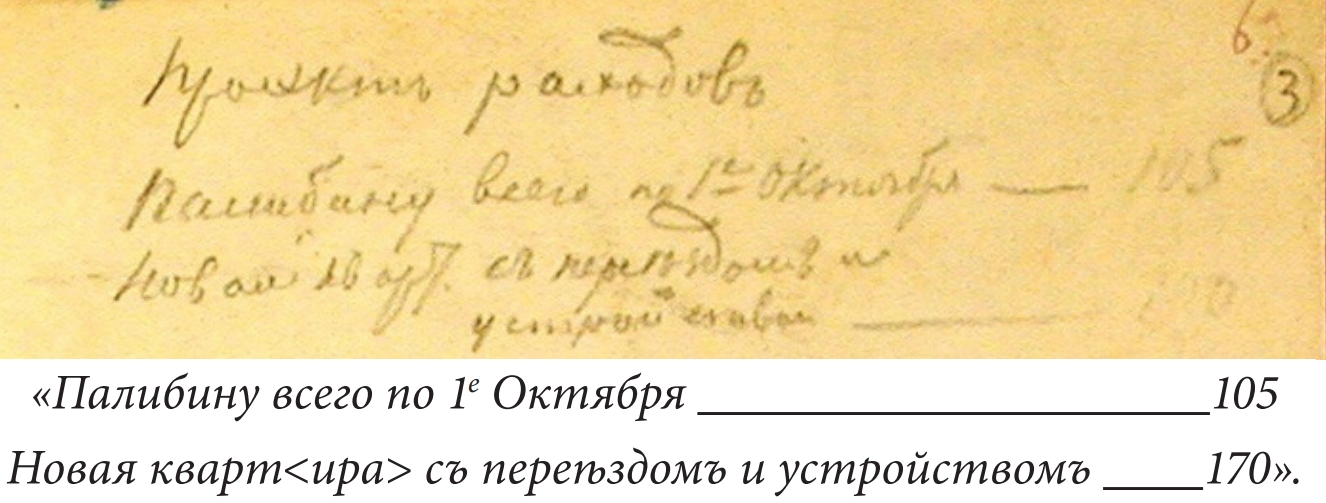 6.
3
Проэктъ расходовъ
Палибину всего по 1е Октября — 105
Новая кварт. съ переѣздомъ и
устройствомъ —
«Палибину всего по 1е Октября ____________________105
Новая кварт<ира> съ переѣздомъ и устройствомъ ____170».